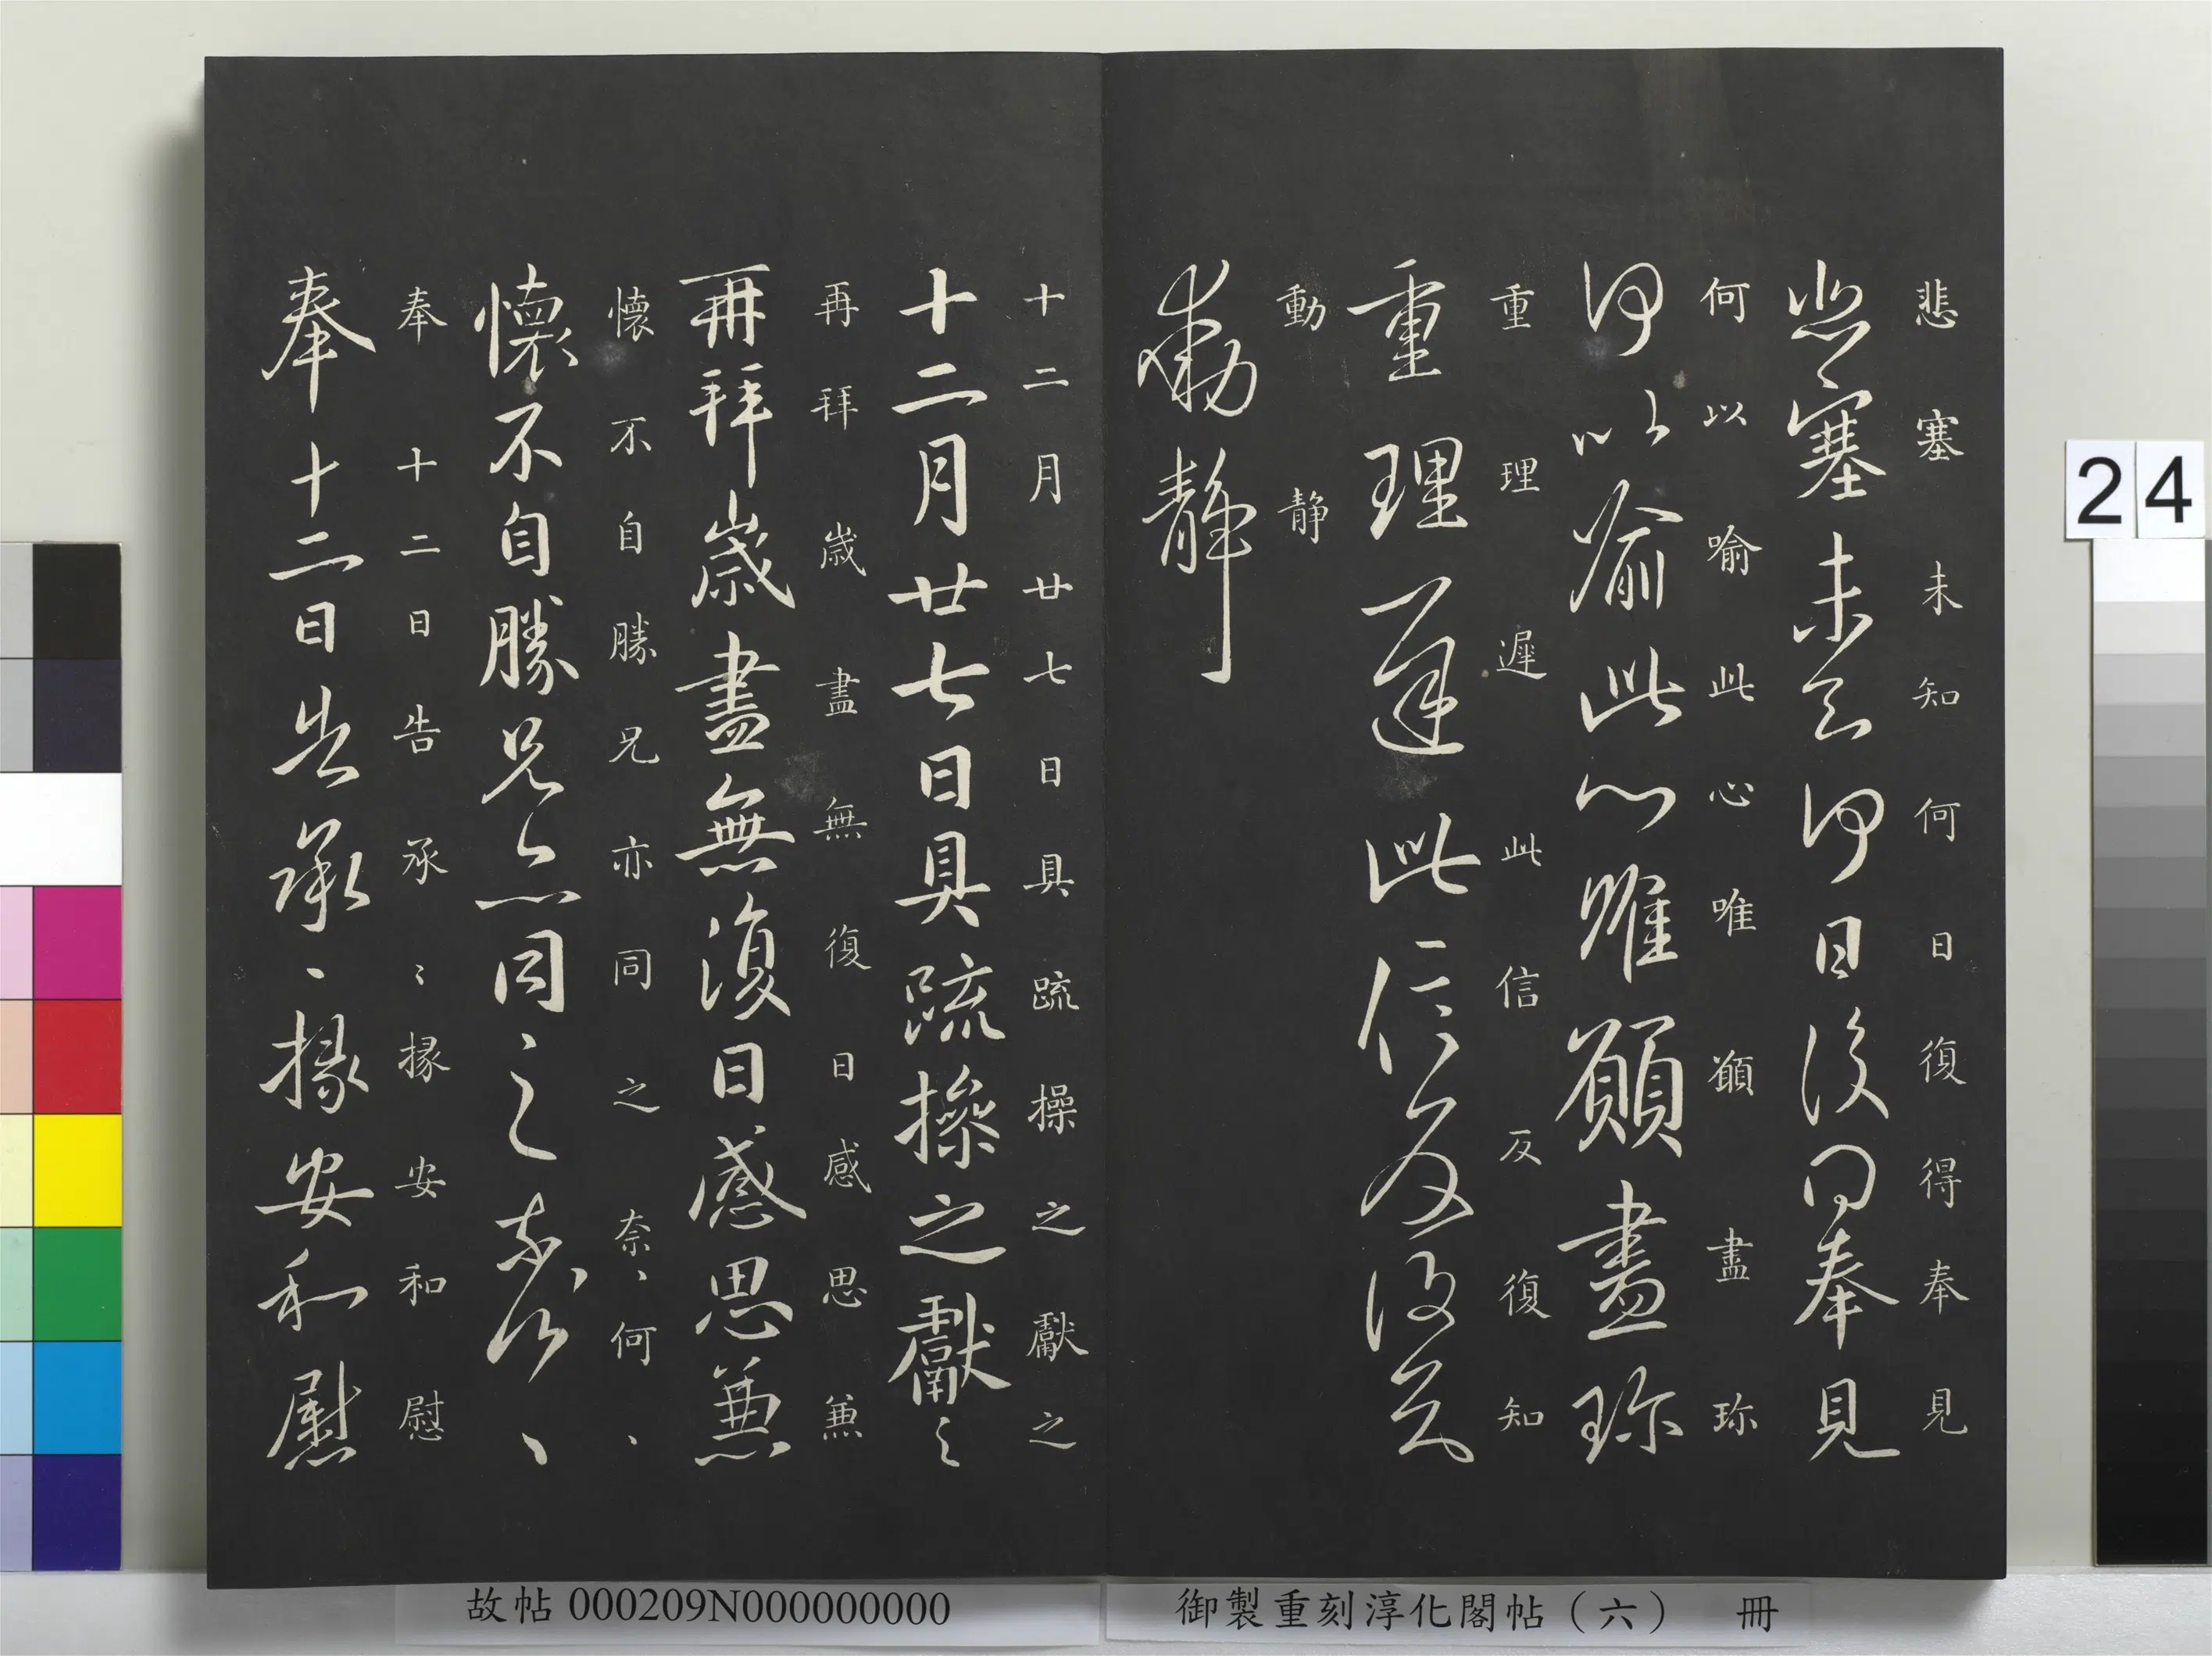 悲塞未知何日復得奉見
悲塞未知何日復得奉見
何以喻此心唯願盡珎
何以喻此心唯願盡珎
重理遲此信反復知
重理遲此信反復知
動靜
動靜
十二月廿七日具疏操之獻之
十二月廿七日具疏操之獻之
再拜歲盡無復日感思兼
再拜歲盡無復日感思兼
懷不自勝兄亦同之奈丶何丶
懷不自勝兄亦同之奈丶何丶
奉十二日告承〻掾安和慰
奉十二日告承丶掾安和慰
24
故帖 000209N000000000
御製重刻淳化閣帖（六） 冊